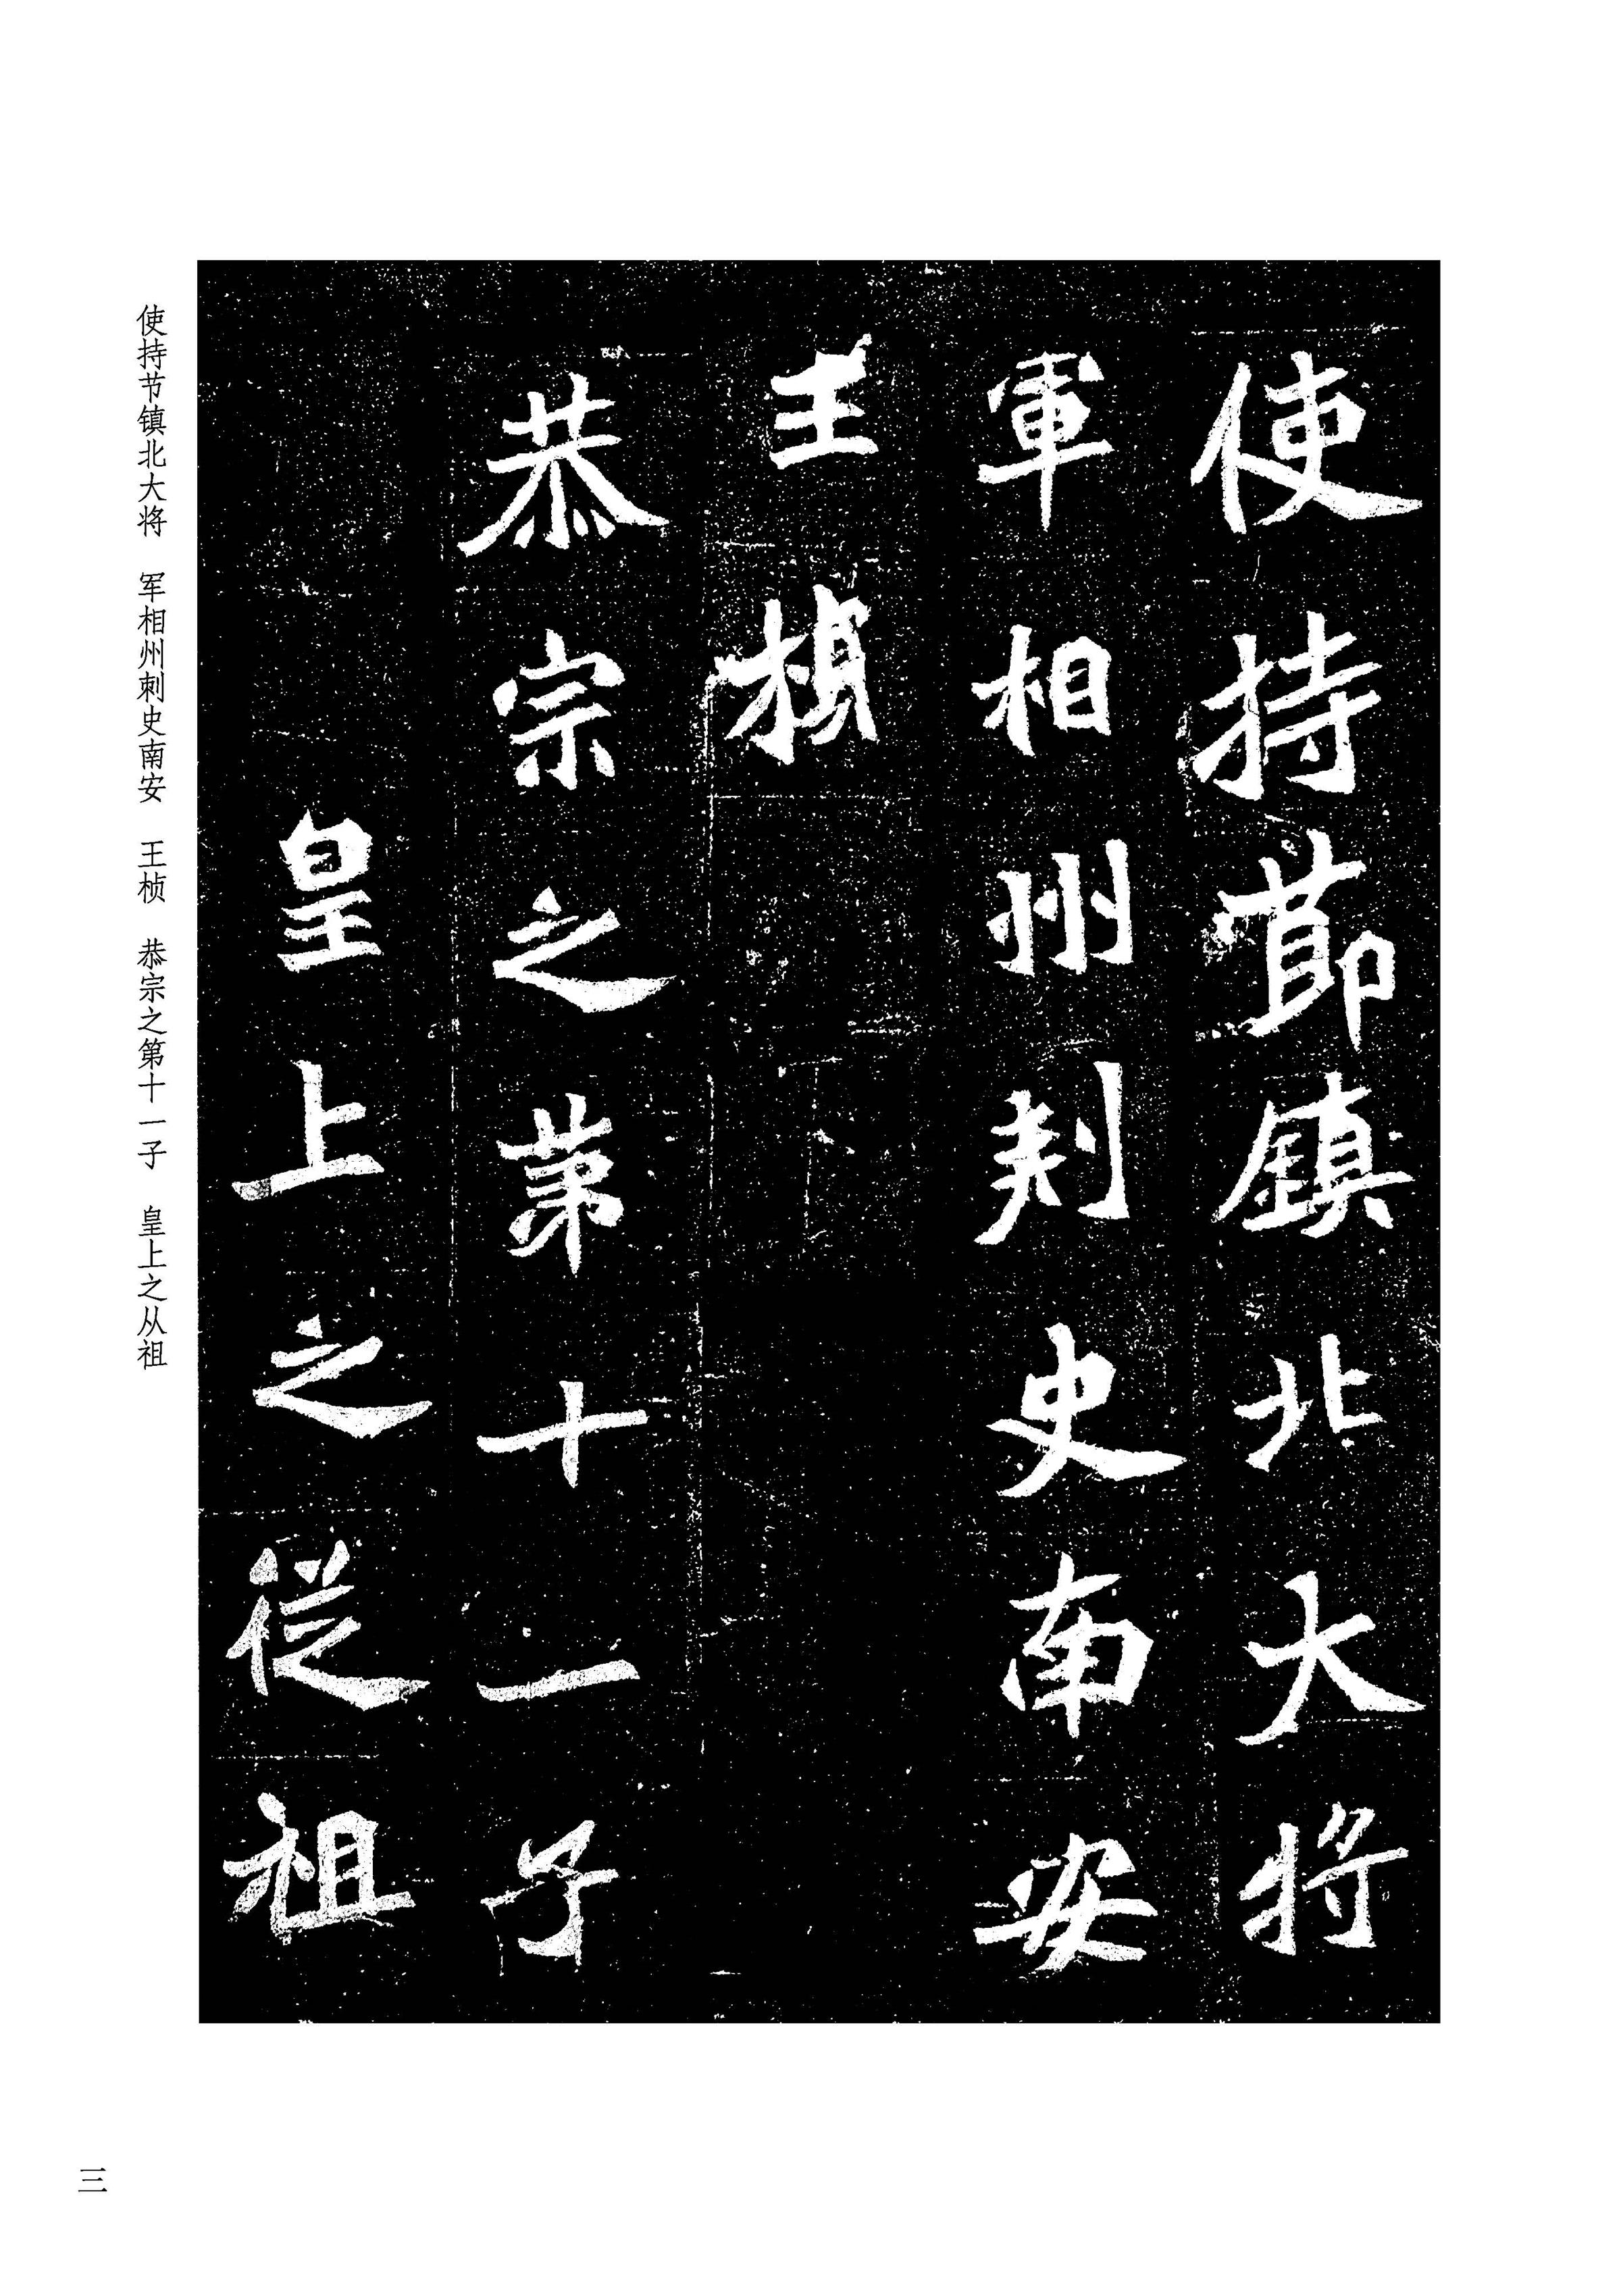 使持節鎮北大將
軍相州刺史南安
王楨
恭宗之第十一子
皇上之從祖
使持节镇北大将　军相州刺史南安　王桢　恭宗之第十一子　皇上之从祖
三